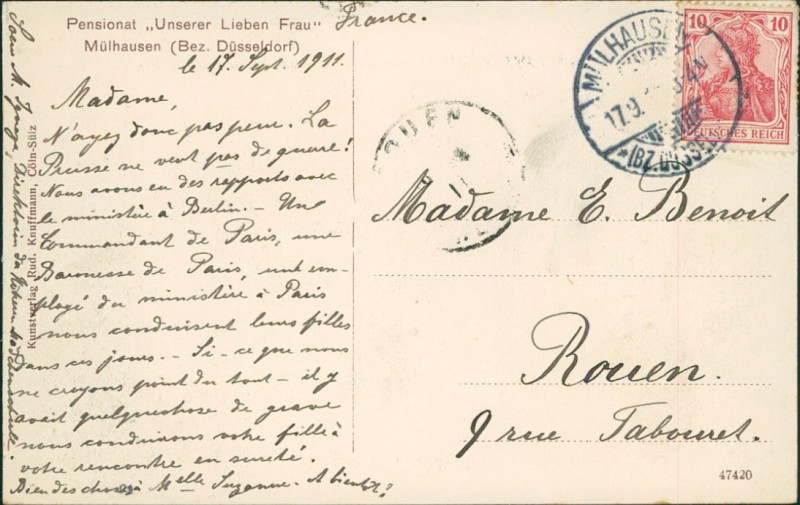 Pensionat „Unserer Lieben Frau"
Mülhausen (Bez. Düsseldorf)
France.
le 17. Sept. 1911.
Madame,
N'ayez donc pas peur. La
Prusse ne veut pas de guerre!
Nous avons eu des rapports avec
le ministère à Berlin. – Une
Commandant de Paris, une
Baronesse de Paris, un em-
ployé du ministère à Paris
nous conduisent leurs filles
dans ces jours. – Si – ce que nous
ne croyons point du tout – il y
avait quelquechose de grave
nous conduirons votre fille à
votre rencontre en sureté.
Bien des choses à Melle Suzanne. A bientôt!
Soeur M.
Direktorin der Höheren Mädchenschule.
Kunstverlag Rud. Knuffmann, Cöln-Sülz
MÜLHAUSEN
17.9.
*(BZ. DÜSSEL
10 10
DEUTSCHES REICH
OUEN
Madame E. Benoit
Rouen.
9 rue Tabouret.
47420